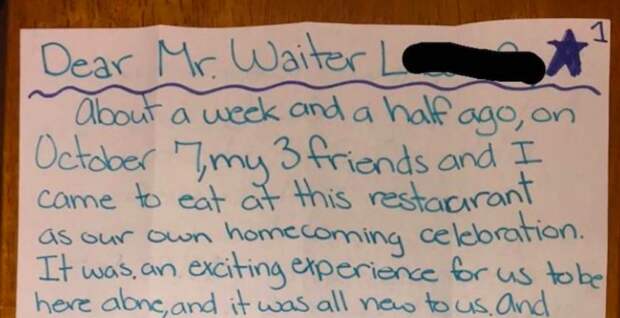 Dear Mr. Waiter L
1
About a week and a half ago, on
October 7, my 3 friends and I
came to eat at this restaraurant
as our own homecoming celebration.
It was, an exciting experience for us to be
here alone, and it was all new to us. And